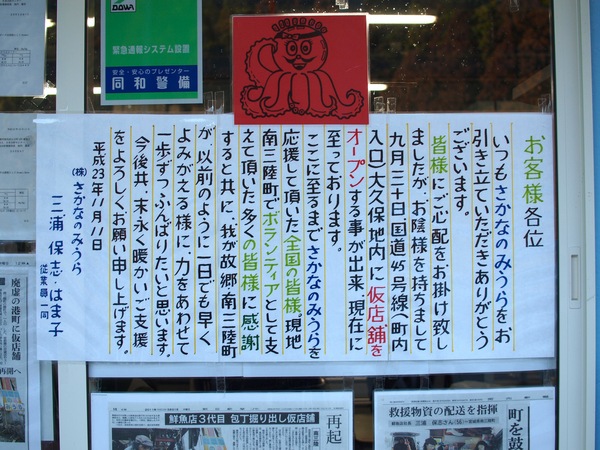 DOWA
緊急通報システム設置
安全・安心のプレゼンター
同和警備
お客様各位
いつもさかなのみうらをお
引き立ていただきありがとう
ございます。
皆様にご心配をお掛け致し
ましたが、お陰様を持ちまして
九月三十日国道45号線入町内
入口(大久保地内)に仮店舗を
オープンする事が出来、現在に
至っております。
ここに至るまでさかなのみうらを
応援して頂いた全国の皆様、現地
南三陸町でボランティアとして支
えて頂いた多くの皆様に感謝
すると共に、我が故郷・南三陸町
が、以前のように一日でも早く
よみがえる様に、力をあわせて
一歩ずつふんばりたいと思います。
今後共、末永く暖かいご支援
をよろしくお願い申し上げます。
平成23年11月11日
(株)さかなのみうら
三浦保志・はま子
従業員一同
廃虚の港町に仮店舗
再開へ
鮮魚店3代目 包丁掘り出し仮店舗
再起
救援物資の配送を指揮
町を鼓